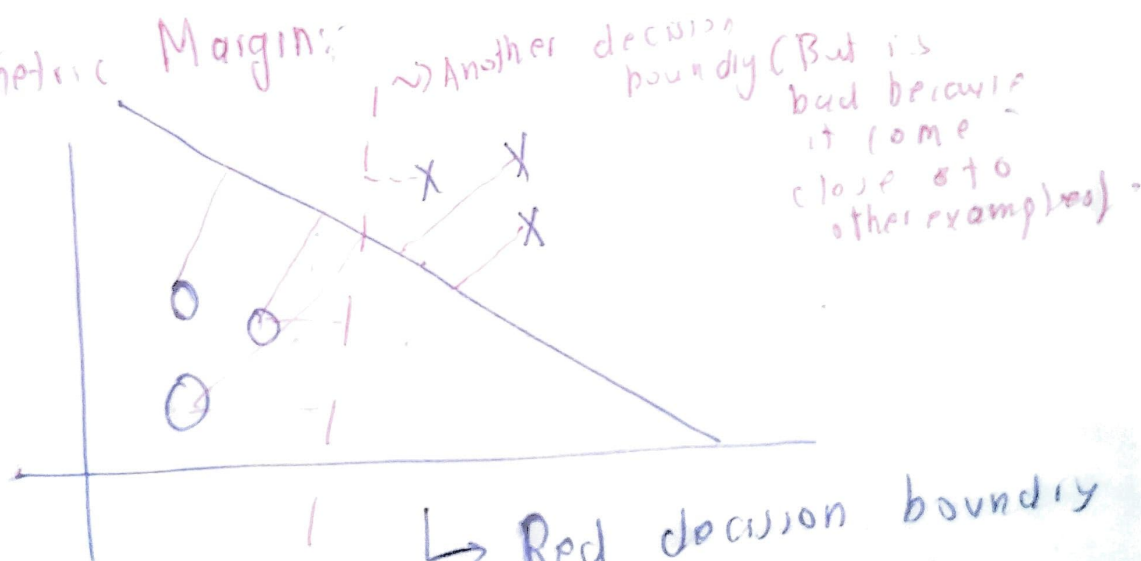 metric Margin:
~) Another decision
boundry (But is
bad because
it come
close to
other examples).
X
X
X
↳ Red decision boundry